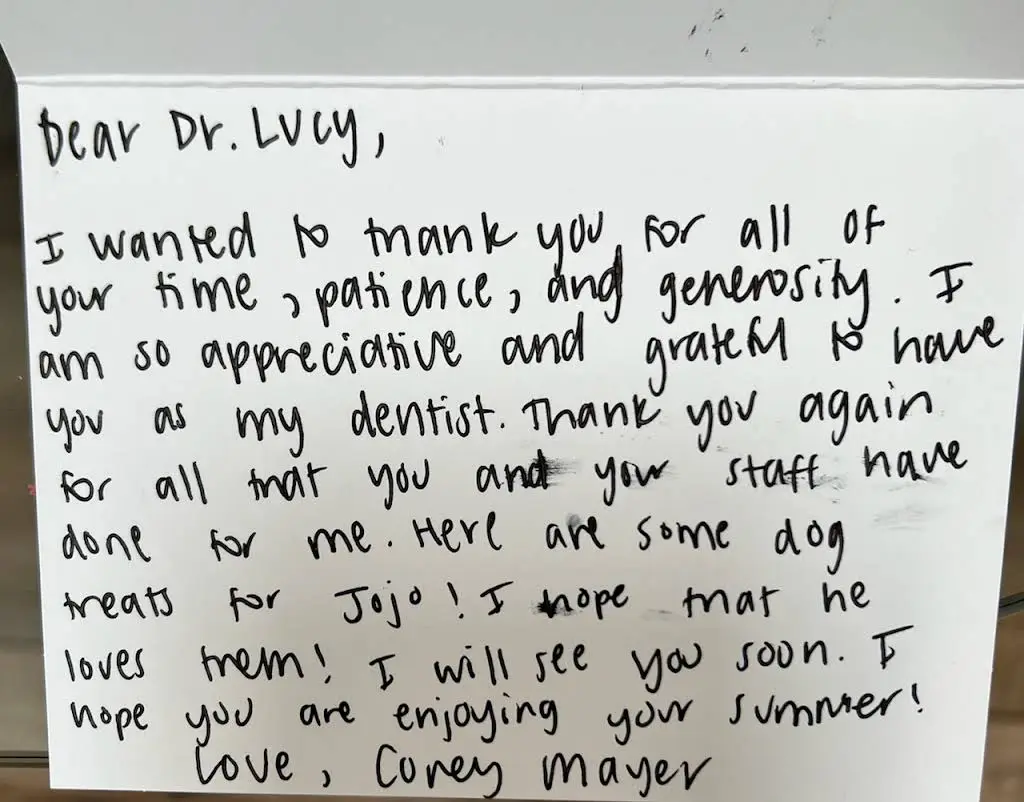 Dear Dr. Lucy,
I wanted to thank you for all of
your time, patience, and generosity. I
am so appreciative and grateful to have
you as my dentist. Thank you again
for all that you and your staff have
done for me. Here are some dog
treats for Jojo! I hope that he
loves them! I will see you soon. I
hope you are enjoying your summer!
Love, Corey Mayer